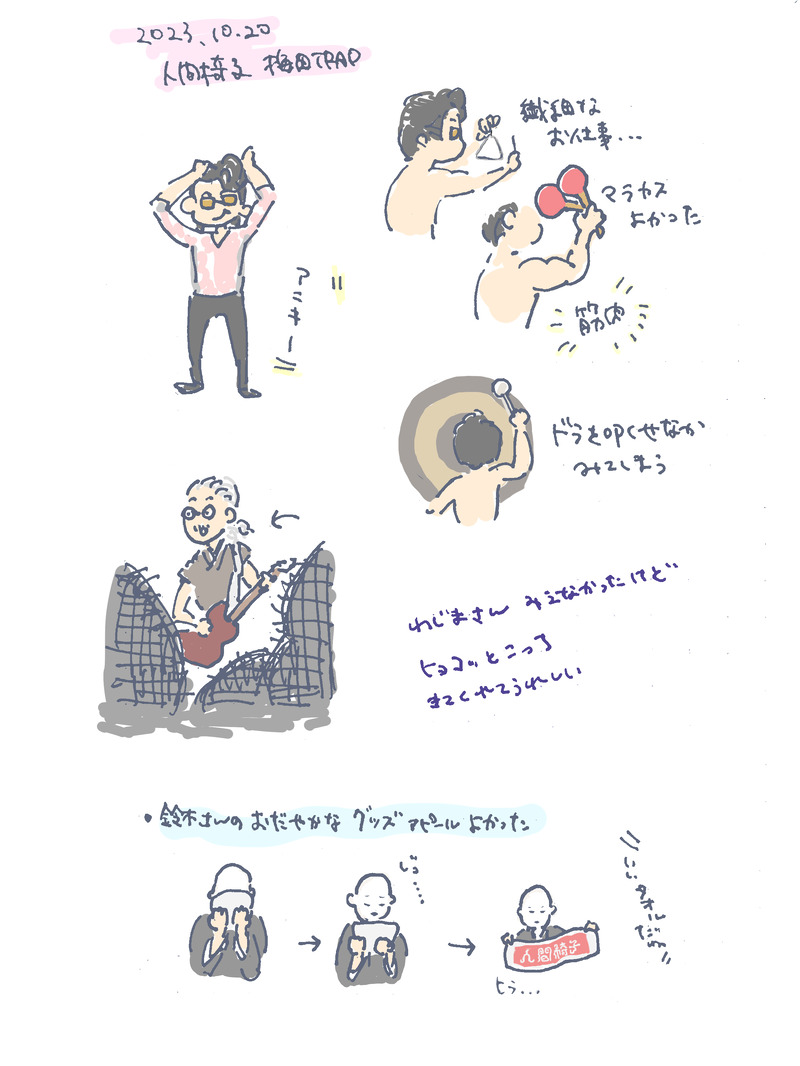 2023.10.20
人間椅子 梅田TRAD
繊細な
お仕事...
マラカス
よかった
アニキー
筋肉
ドラを叩くせなか
みてしまう
わじまさん みえなかったけど
ヒョコッとこっち
きてくれてうれしい
・鈴木さんの おだやかな グッズアピール よかった
じっ......
→
→
人間椅子
いいタオルだね